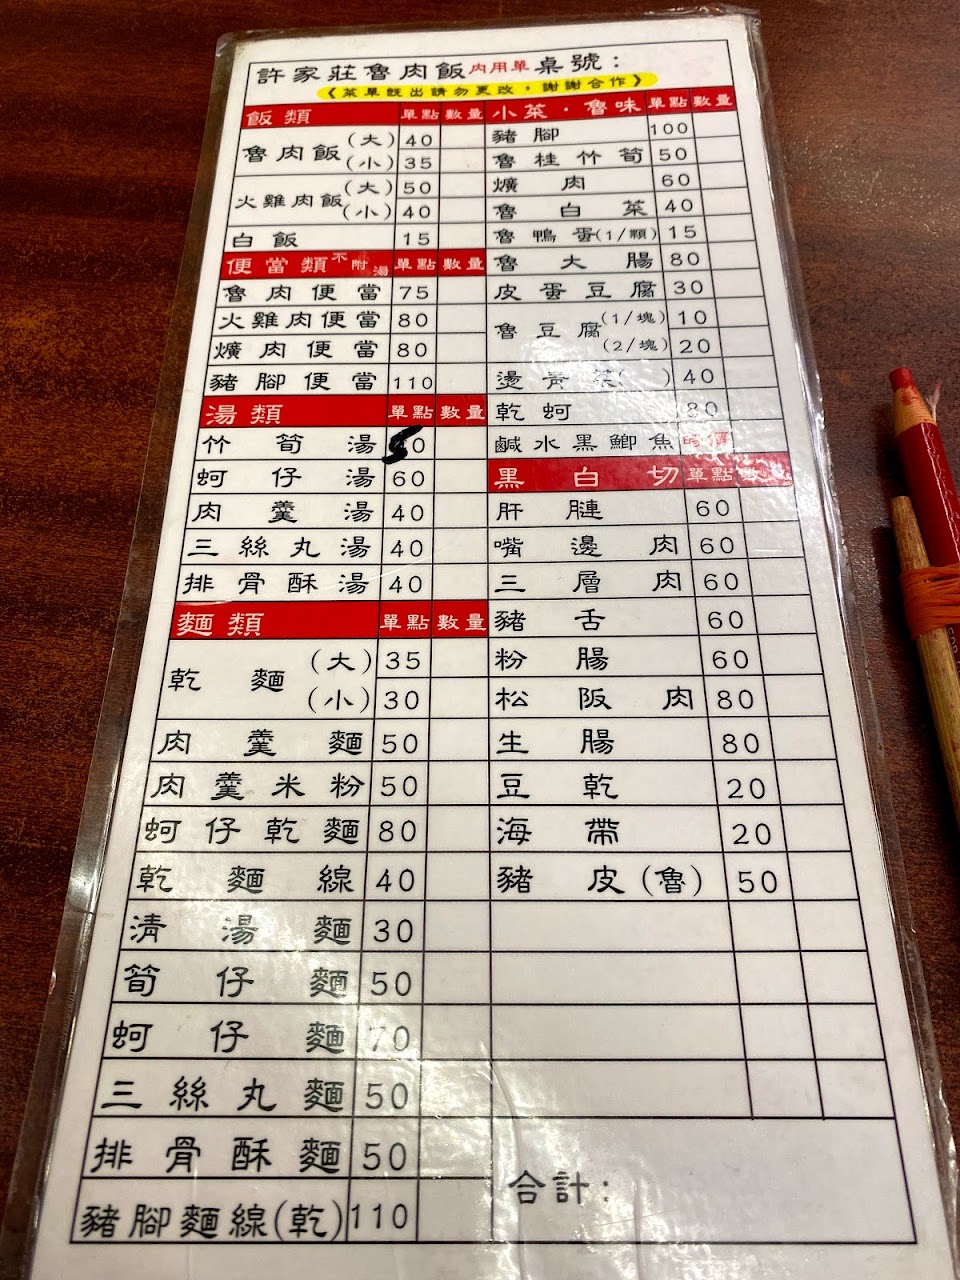 許家莊魯肉飯內用單桌號：
《菜單既出請勿更改，謝謝合作》
飯類 單點 數量
魯肉飯(大) 40
(小) 35
火雞肉飯(大) 50
(小) 40
白飯 15
便當類不附湯 單點 數量
魯肉便當 75
火雞肉便當 80
爌肉便當 80
豬腳便當 110
湯類 單點 數量
竹筍湯 50
蚵仔湯 60
肉羹湯 40
三絲丸湯 40
排骨酥湯 40
麵類 單點 數量
乾麵(大) 35
(小) 30
肉羹麵 50
肉羹米粉 50
蚵仔乾麵 80
乾麵線 40
清湯麵 30
筍仔麵 50
蚵仔麵 70
三絲丸麵 50
排骨酥麵 50
豬腳麵線(乾) 110
小菜·魯味 單點 數量
豬腳 100
魯桂竹筍 50
爌肉 60
魯白菜 40
魯鴨蛋(1/顆) 15
魯大腸 80
皮蛋豆腐 30
魯豆腐(1/塊) 10
(2/塊) 20
燙青菜( ) 40
乾蚵 80
鹹水黑鯽魚 時價
黑白切 單點 數量
肝膧 60
嘴邊肉 60
三層肉 60
豬舌 60
粉腸 60
松阪肉 80
生腸 80
豆乾 20
海帶 20
豬皮(魯) 50
合計：